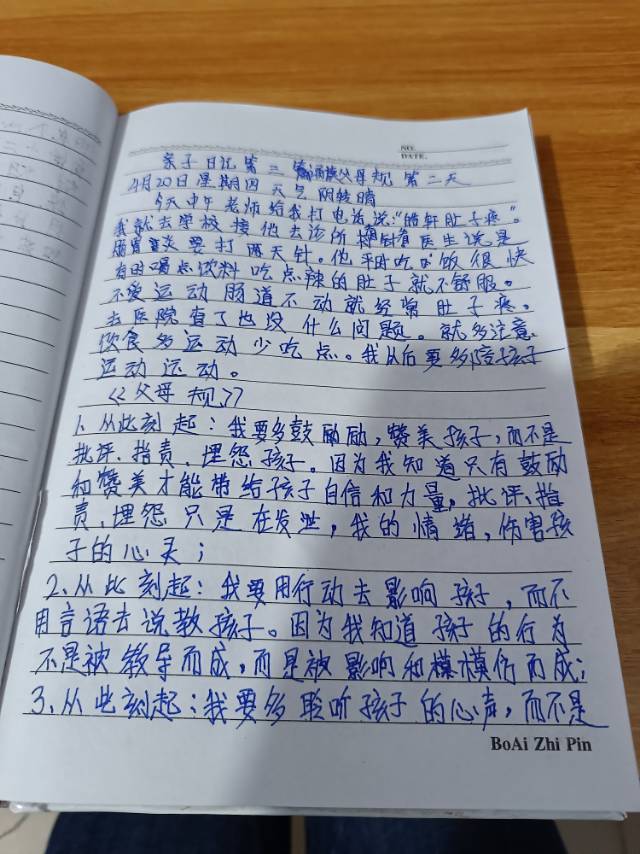 NO.
DATE.
亲子日记第三篇诵读父母规第二天
4月20日星期四天气阴转晴
今天中午老师给我打电话说:"皓轩肚子疼"。
我就去学校接他去诊所 医生说是
肠胃炎要打两天针。他平时吃饭很快
有时喝点饮料吃点辣的肚子就不舒服。
不爱运动肠道不动就经常肚子疼。
去医院查了也没什么问题。就多注意
饮食多运动少吃点。我从后要多陪孩子
运动运动。
《父母规》
1、从此刻起:我要多鼓励励,赞美孩子,而不是
批评、指责、埋怨孩子。因为我知道只有鼓励
和赞美才能带给孩子自信和力量,批评、指
责、埋怨只是在发泄,我的情绪,伤害孩
子的心灵;
2、从此刻起:我要用行动去影响孩子,而不
用言语去说教孩子。因为我知道孩子的行为
不是被教导而成,而是被影响和模模仿而成;
3、从此刻起:我要多聆听孩子的心声,而不是
BoAi Zhi Pin